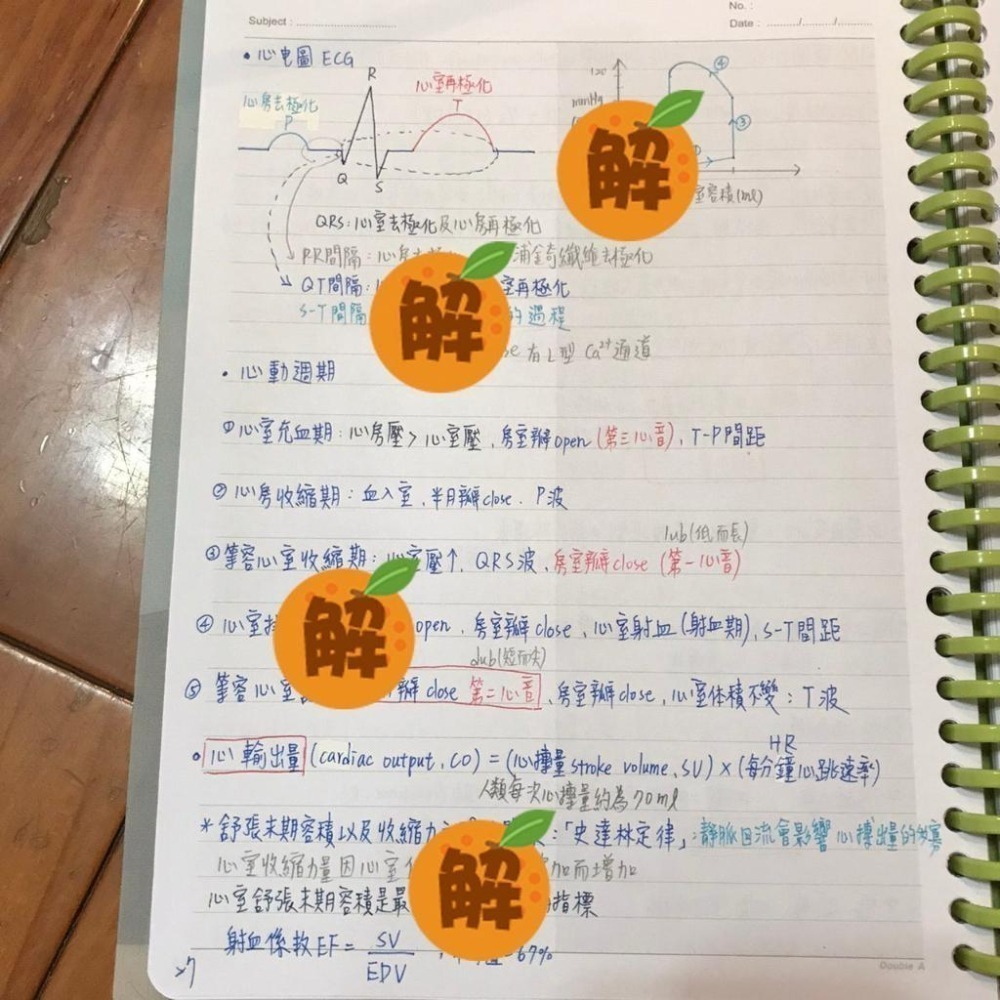 No.:
Subject:
Date: / /
• 心电圖 ECG
R
心室再極化
T
心房去極化
P
Q
S
120
mmHg
④
③
容積(ml)
QRS:心室去極化及心房再極化
PR間隔:心房 浦金奇纖維去極化
QT間隔: 室再極化
S-T間隔 的過程
解
解
有L型 Ca²⁺通道
• 心動週期
① 心室充血期:心房壓>心室壓,房室瓣open(第三心音),T-P間距
② 心房收縮期:血入室,半月瓣close. P波
lub(低而長)
③ 等容心室收縮期:心室壓↑, QRS波,房室瓣close (第一心音)
解
④ 心室 open,房室瓣close,心室射血(射血期),S-T間距
dub(短而尖)
⑤ 等容心室 瓣 close 第二心音,房室瓣close,心室体積不變:T波
HR
• 心輸出量(cardiac output, CO) = (心搏量 stroke volume, SV) × (每分鐘心跳速率)
人類每次心搏量約為70ml
*舒張末期容積以及收縮力 :「史達林定律」:靜脈回流會影響心搏出量的
心室收縮力量因心室 加而增加
解
心室舒張末期容積是最 指標
射血係數EF = SV/EDV , 67%
27
Double A